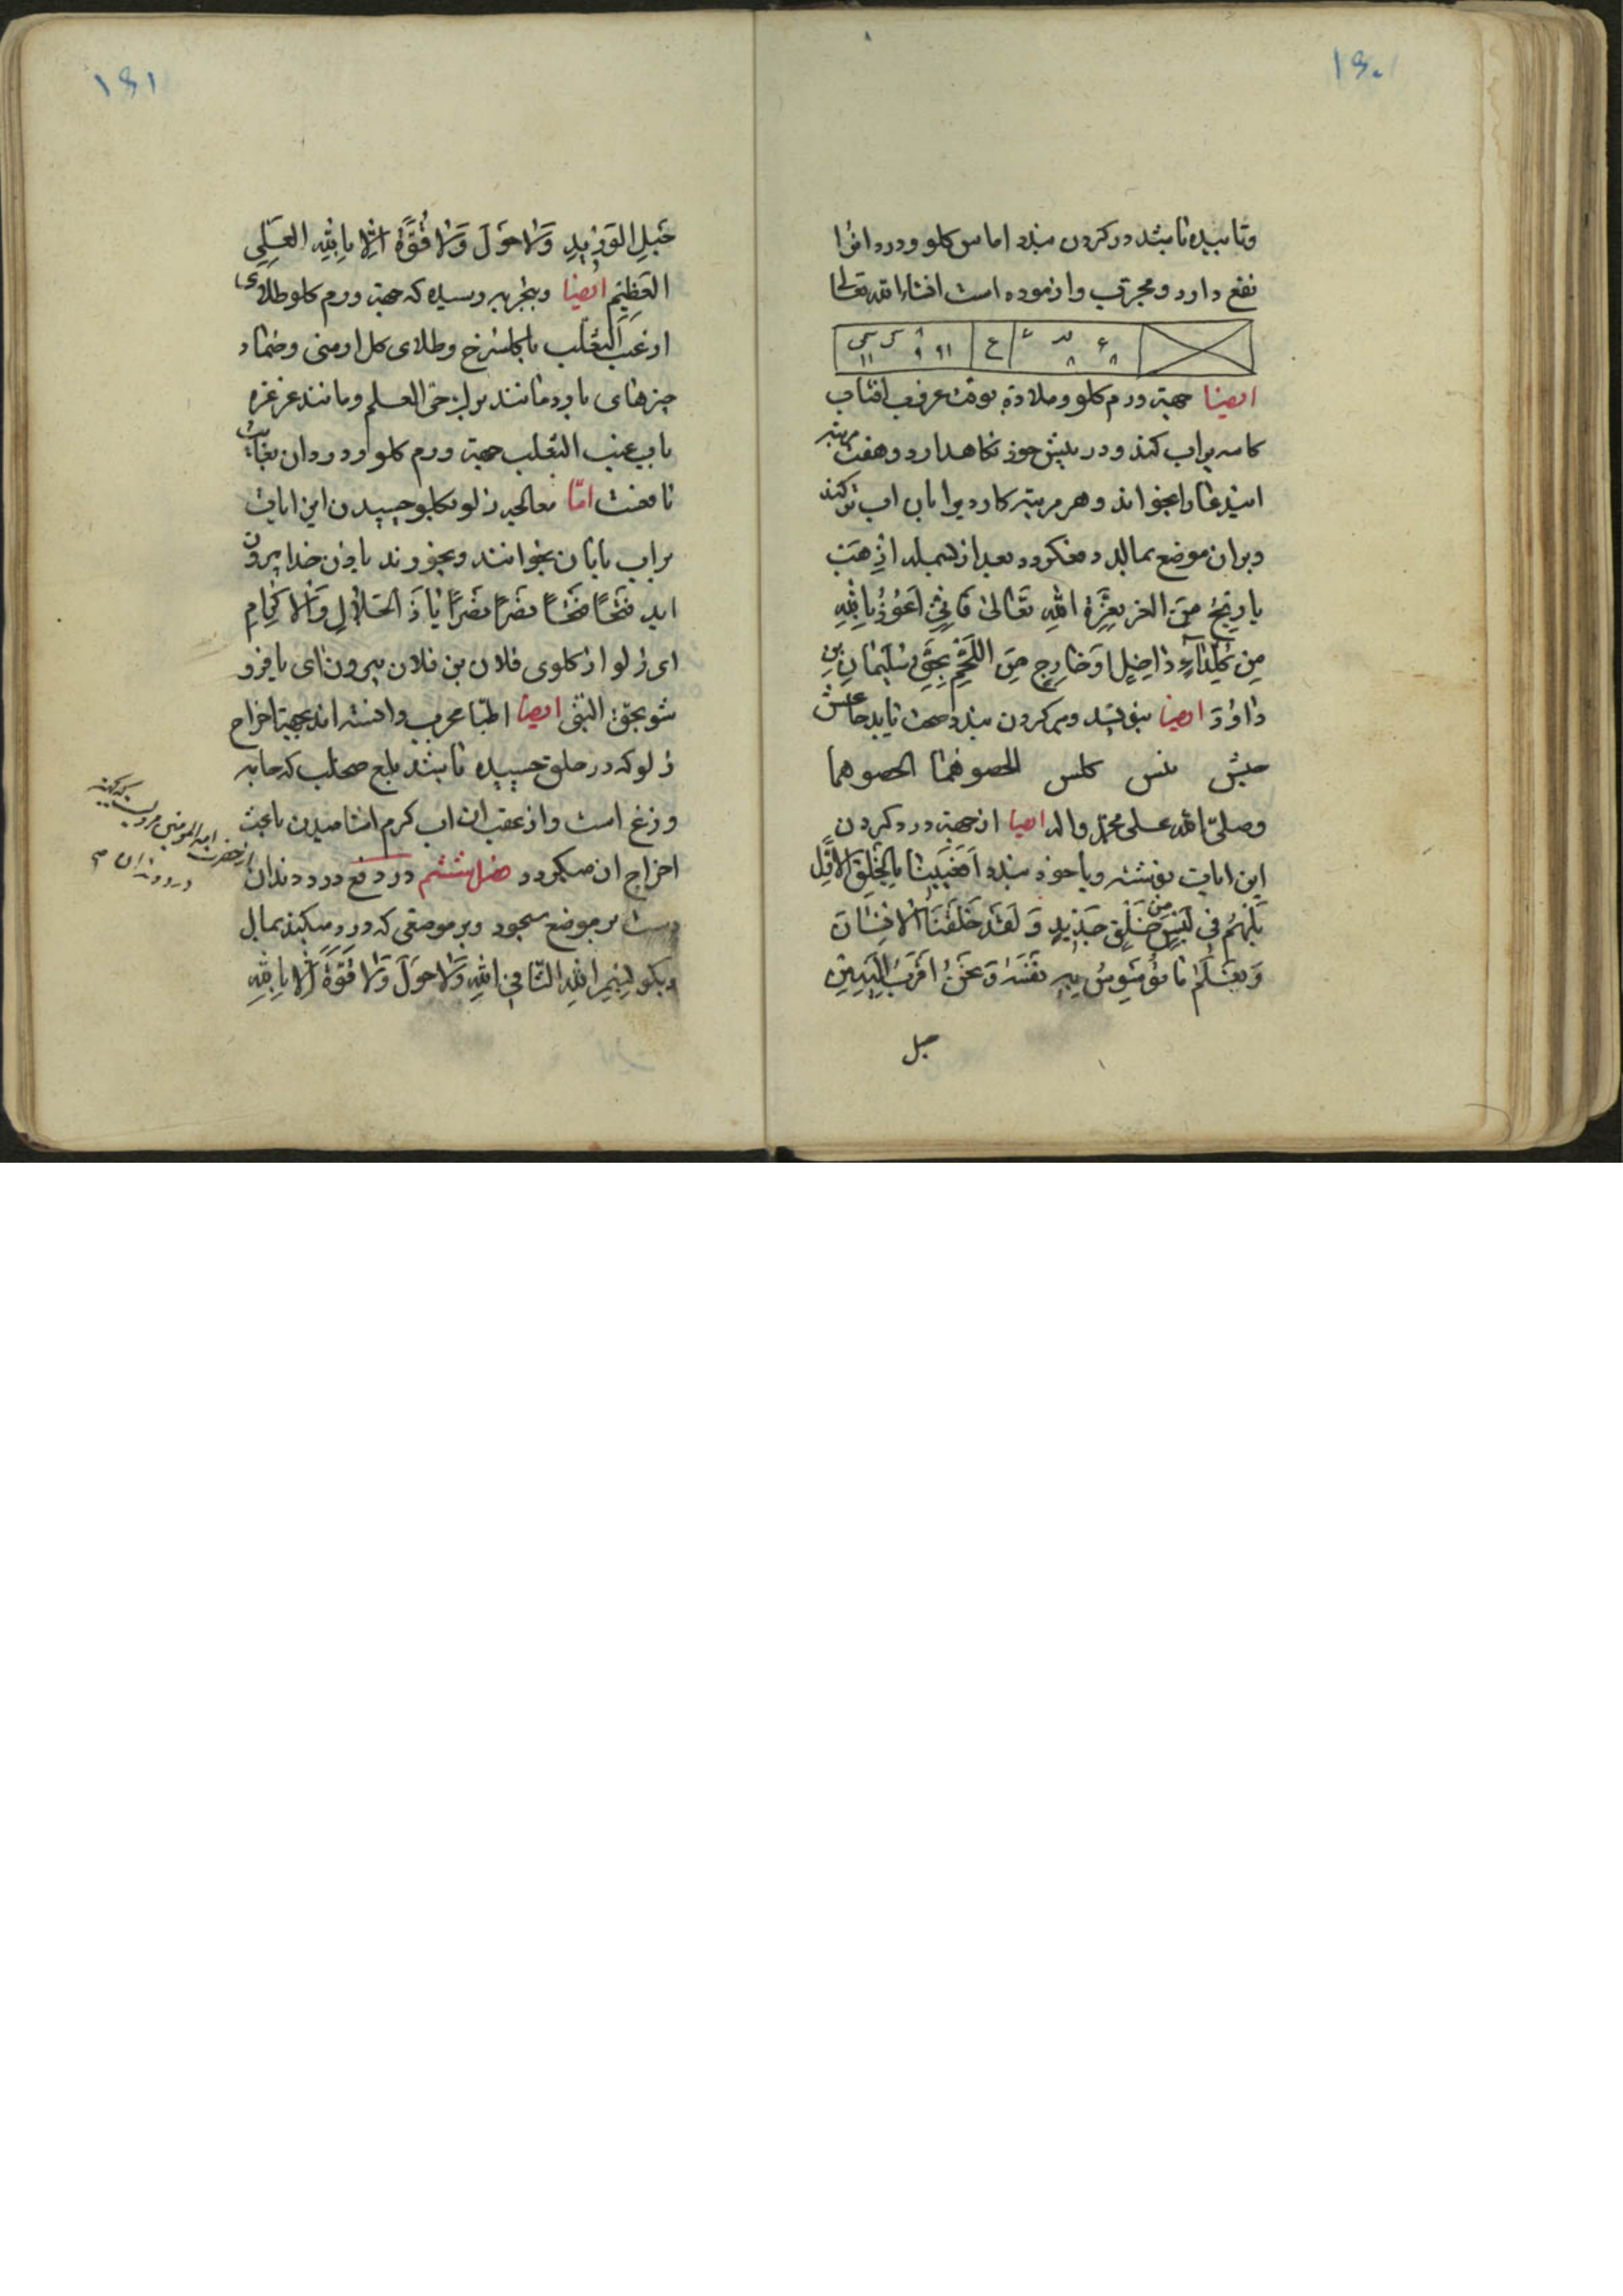 ١٤٠
وتابیده باشد در کردن بندد اماس کلو و درد انرا
نفع دارد و مجرّب و ازموده است انشاءالله تعالی
ایضا جهة ورم کلو و ملاذه بوقت غروب افتاب
کاسه پراب کند و در پیش خود نکاهدارد و هفت مرتبه
این دعا را بخواند و هر مرتبه کارد برا بان اب تر کند
و بران موضع بمالد و بعد از بسمله اذهب
یا ریح من العز بعزّة الله تعالی فانی اعوذ بالله
من داخل او خارج من اللحم بحق سلیمان بن
داود ایضا بنویسد و بر کردن بندد صحت یابد
وصلی الله علی محمد واله ایضا از جهة درد کردن
این ایات نوشته و با خود بندد افعیینا بالخلق الاوّل
بل هم فی لبس من خلق جدید و لقد خلقنا الانسان
و نعلم ما توسوس به نفسه و نحن اقرب الیه من
حبل
١٤١
حبل الورید ولا حول ولا قوّة الا بالله العلی
العظیم ایضا و بتجربه رسیده که جهة ورم کلو طلای
از عنب الثعلب با کل سرخ و طلای کل ارمنی و ضماد
چیزهای بارد مانند برک حی العالم و مانند غرغره
باب عنب الثعلب جهة ورم کلو و درد ان بغایت
نافعست امّا معالجه زلو بکلو چسپیدن این ایات
براب باران بخوانند و بخورند باذن خدا بیرون
اید فتحًا فتحًا نصرًا نصرًا یا ذا الجلال والاکرام
ای زلو از کلوی فلان بن فلان بیرون ای یا فرو
شو بحق النبی ایضا اطبّا مجرب دانسته اند بجهة اخراج
زلو که در حلق چسپیده باشد بلع طحلب که جامه
وزغ است و از عقب ان اب کرم اشامیدن باعث
اخراج ان میکردد فصل ششم در دفع درد دندان
دست بر موضع سجود و بر موضعی که درد میکند بمالد
و بکوید بسم الله الشافی الله ولا حول ولا قوّة الا بالله
از حضرت امیر المومنین مرویست که